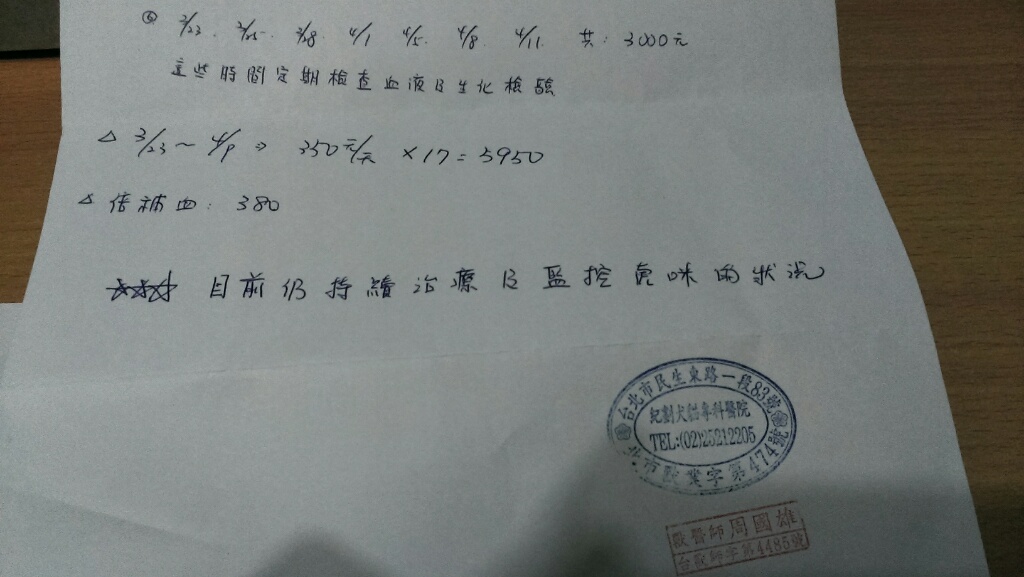 ⑥ 3/23. 3/25. 3/28 4/1 4/5. 4/8. 4/11. 共: 3000元
這些時間定期檢查血液及生化檢驗
△ 3/23～4/8 ⇒ 350元/天 ×17=5950
△ 倍補血: 380
目前仍持續治療及監控虎咪的狀況
台北市民生東路一段83號
紀劃犬猫專科醫院
TEL:(02)25212205
北市獸業字第474號
獸醫師周國雄
台獸師字第4485號